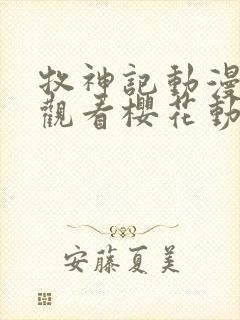 牧神記動漫
觀看櫻花動
安藤夏美